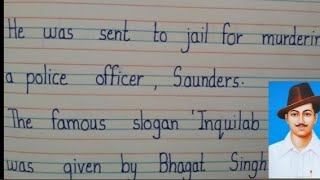 He was sent to jail for murderin
a police officer, Saunders.
The famous slogan 'Inquilab
was given by Bhagat Singh